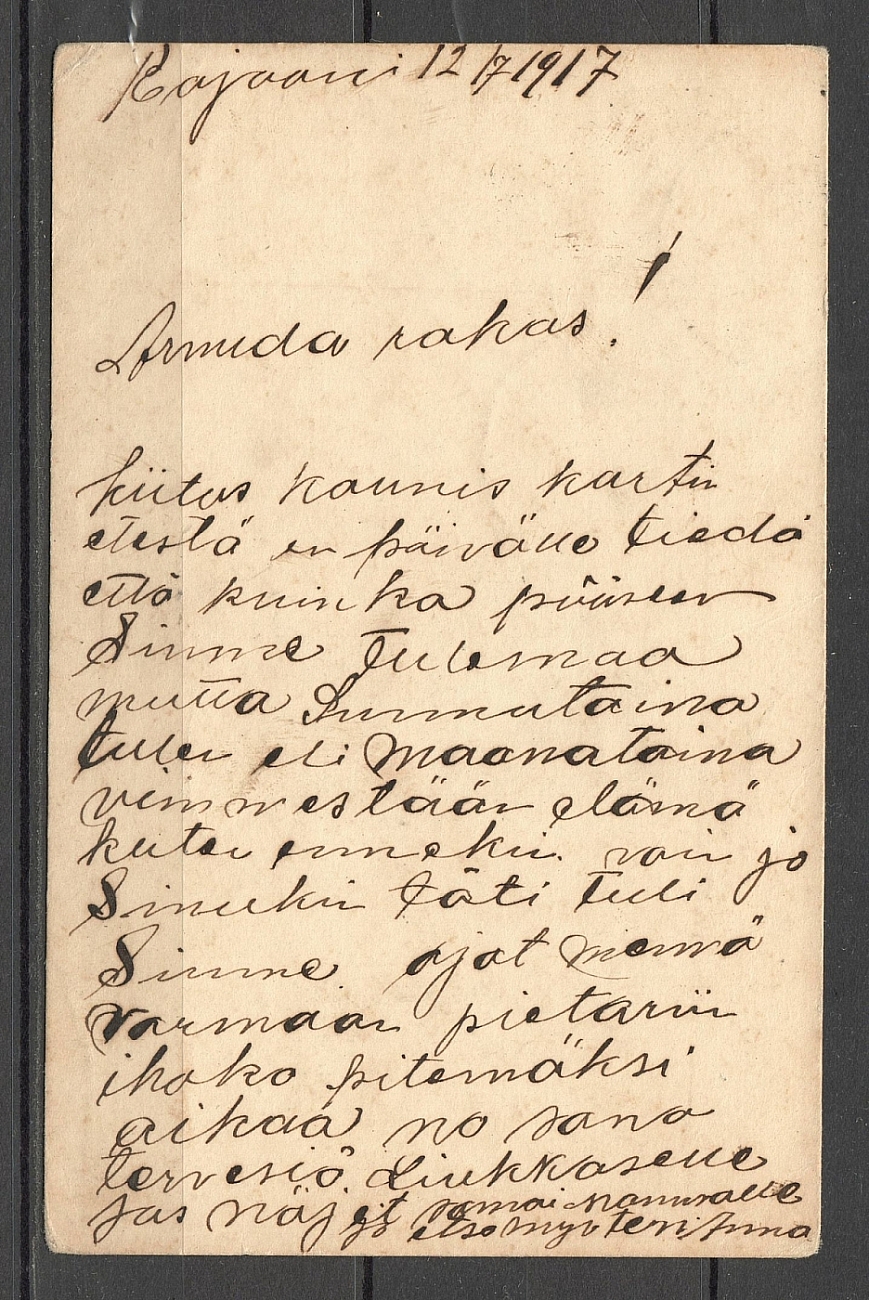 Kajaani 12/7 1917
Armida rakas!
kiitos kaunis kartin
etestä en päivälle tiedä
että kuinka pääsen
Sinne Tulemaa
mutta Sunnutaina
tulen eli Maanataina
viimmestään elämä
kuten ennekin vain jo
Sinukin täti Tuli
Sinne ajat mennä
varmaan pietariin
ihako pitemäksi
aikaa no sano
terveisiä Liukkaselle
jas näjet samai
myö Anna